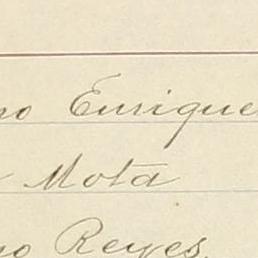 no Enrique
Mota
no Reyes.